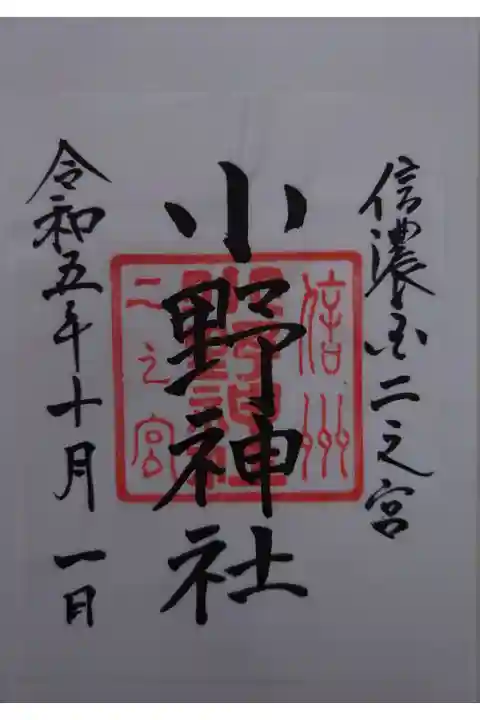 信濃国二之宮
小野神社
信州
小野神社
二之宮
令和五年十月一日